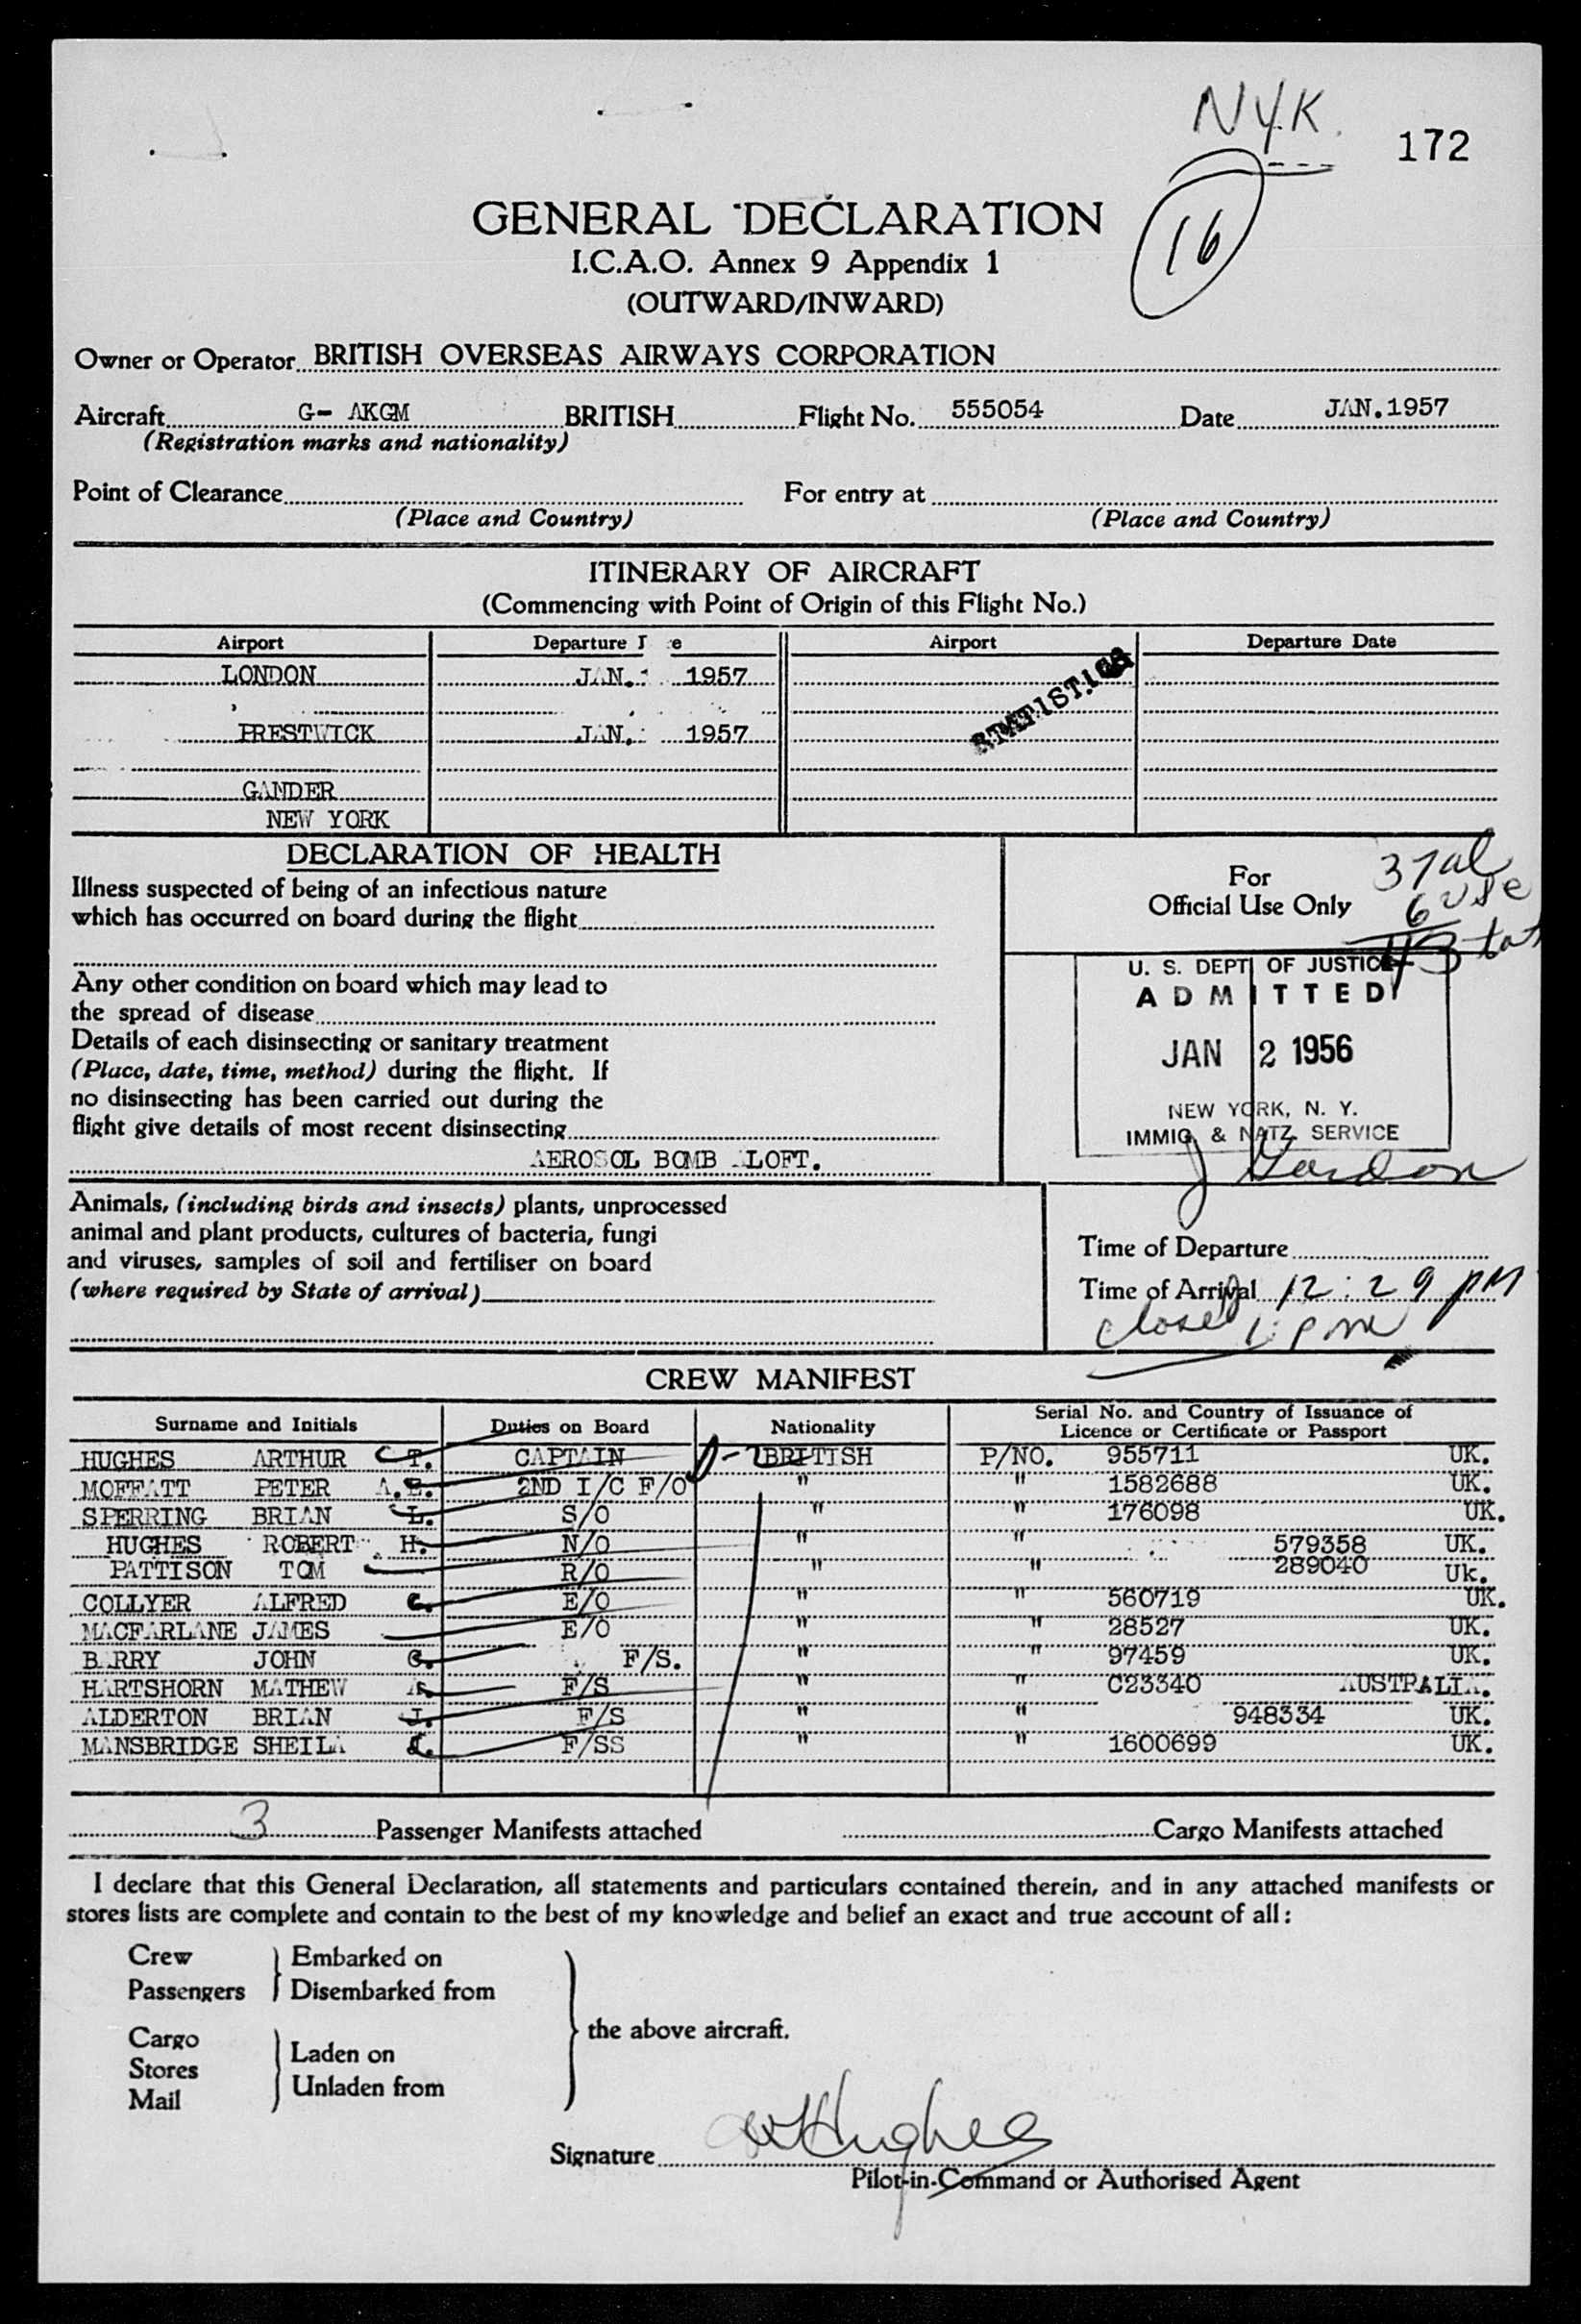 NYK.
172
16
GENERAL DECLARATION
I.C.A.O. Annex 9 Appendix 1
(OUTWARD/INWARD)
Owner or Operator BRITISH OVERSEAS AIRWAYS CORPORATION
Aircraft G- AKGM BRITISH Flight No. 555054 Date JAN.1957
(Registration marks and nationality)
Point of Clearance For entry at
(Place and Country) (Place and Country)
ITINERARY OF AIRCRAFT
(Commencing with Point of Origin of this Flight No.)
Airport Departure Airport Departure Date
LONDON JAN. 1957
STATISTICS
PRESTWICK JAN. 1957
GANDER
NEW YORK
DECLARATION OF HEALTH
Illness suspected of being of an infectious nature
which has occurred on board during the flight
Any other condition on board which may lead to
the spread of disease
Details of each disinsecting or sanitary treatment
(Place, date, time, method) during the flight. If
no disinsecting has been carried out during the
flight give details of most recent disinsecting
AEROSOL BOMB ALOFT.
For
Official Use Only
37 al
6 usc
43 tot
U. S. DEPT OF JUSTICE
ADMITTED
JAN 2 1956
NEW YORK, N. Y.
IMMIG. & NATZ. SERVICE
J Gordon
Animals, (including birds and insects) plants, unprocessed
animal and plant products, cultures of bacteria, fungi
and viruses, samples of soil and fertiliser on board
(where required by State of arrival)
Time of Departure
Time of Arrival 12:29 PM
Closed 1: pm
CREW MANIFEST
Surname and Initials Duties on Board Nationality Serial No. and Country of Issuance of
Licence or Certificate or Passport
HUGHES ARTHUR T. CAPTAIN BRITISH P/NO. 955711 UK.
MOFFATT PETER A.E. 2ND I/C F/O " " 1582688 UK.
SPERRING BRIAN L. S/O " " 176098 UK.
HUGHES ROBERT H. N/O " " 579358 UK.
PATTISON TOM R/O " " 289040 Uk.
COLLYER ALFRED C. E/O " " 560719 UK.
MACFARLANE JAMES E/O " " 28527 UK.
BARRY JOHN C. F/S. " " 97459 UK.
HARTSHORN MATHEW F/S " " C23340 AUSTRALIA.
ALDERTON BRIAN J. F/S " " 948334 UK.
MANSBRIDGE SHEILA F/SS " " 1600699 UK.
3 Passenger Manifests attached Cargo Manifests attached
I declare that this General Declaration, all statements and particulars contained therein, and in any attached manifests or
stores lists are complete and contain to the best of my knowledge and belief an exact and true account of all:
Crew Embarked on
Passengers Disembarked from
the above aircraft.
Cargo
Stores Laden on
Mail Unladen from
Signature Hughes
Pilot-in-Command or Authorised Agent